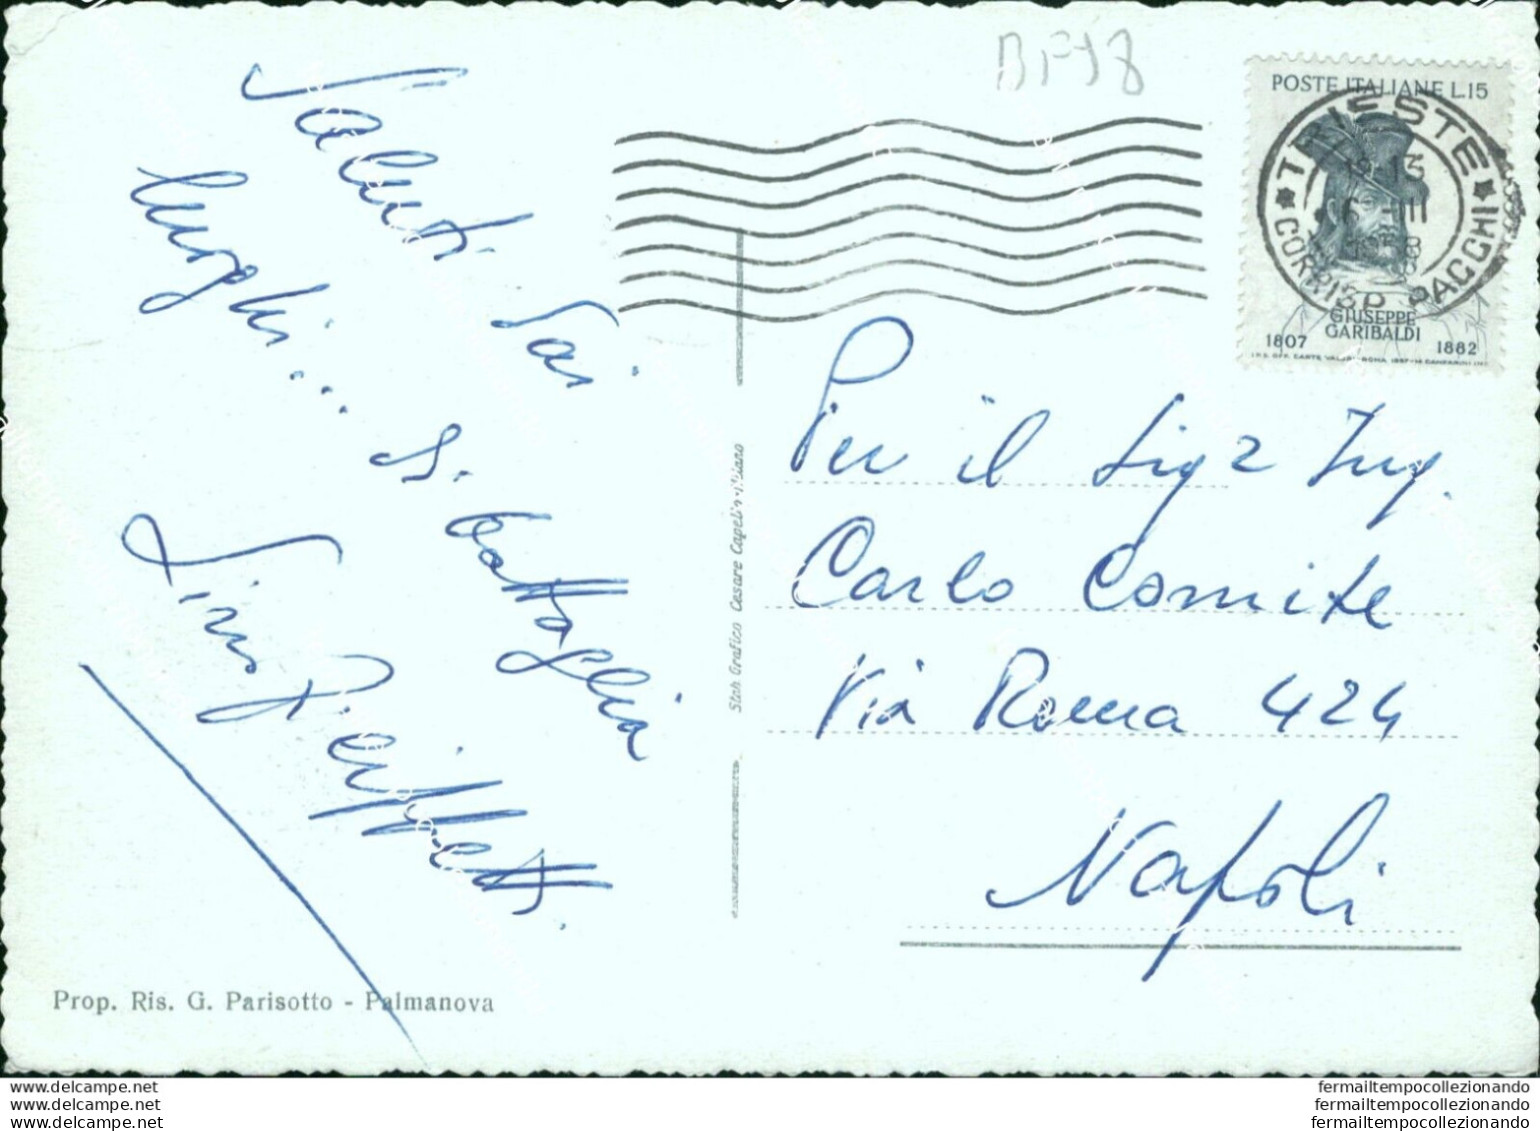 BF98
POSTE ITALIANE L.15
TRIESTE
1958
CORRISP. PACCHI
GIUSEPPE
GARIBALDI
1807 1882
Saluti dai
luoghi...
di battaglia
Per il Sigr Ing.
Carlo Comite
Via Roma 424
Napoli
Stab. Grafico Cesare Capello - Milano
Prop. Ris. G. Parisotto - Palmanova
www.delcampe.net
www.delcampe.net
www.delcampe.net
fermailtempocollezionando
fermailtempocollezionando
fermailtempocollezionando